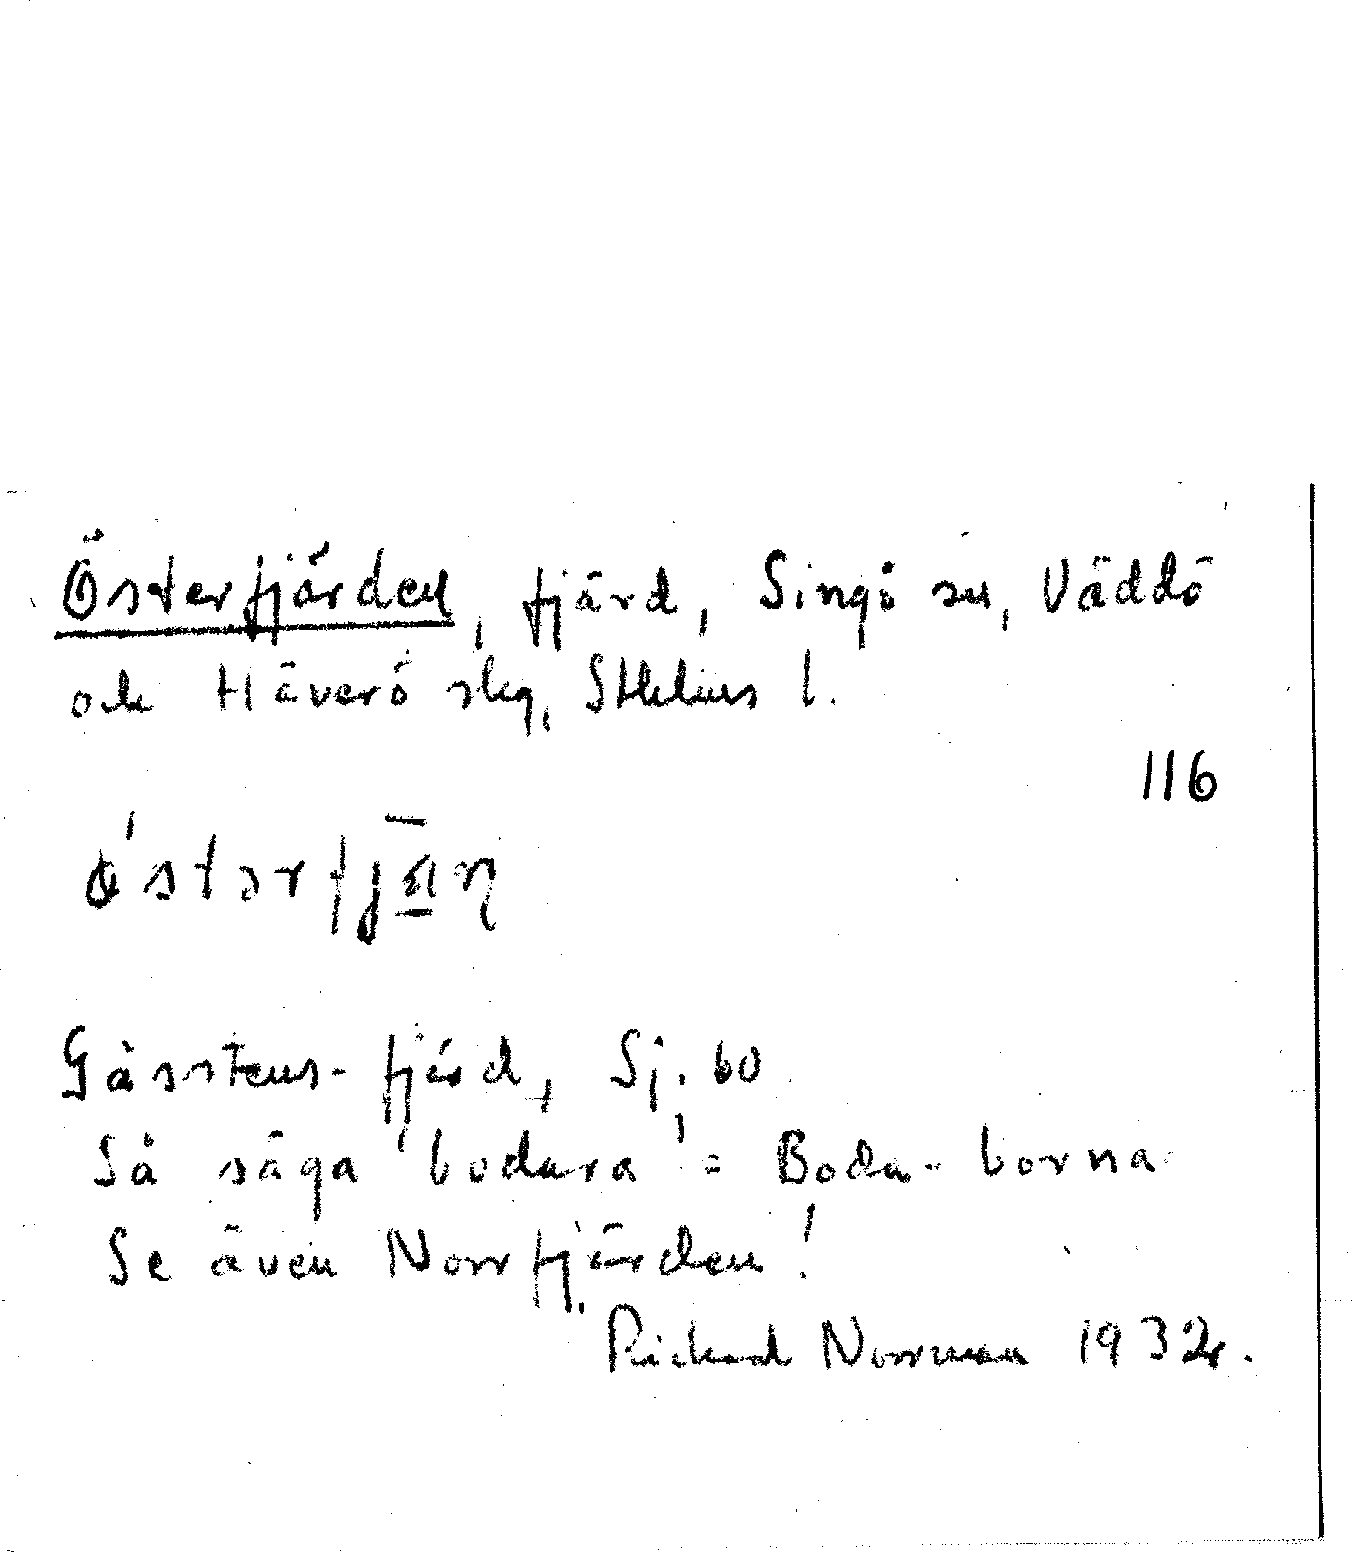 Österfjärden, fjärd, Singö sn, Väddö
och Häverö skg, Sthlms l.
116
ǿ'stərfjǟ̱ṇ
Gåsstens-fjärd, Sj. 60
Så säga 'bodara' = Boda-borna
Se även Norrfjärden!
Rickard Norrman 1932.